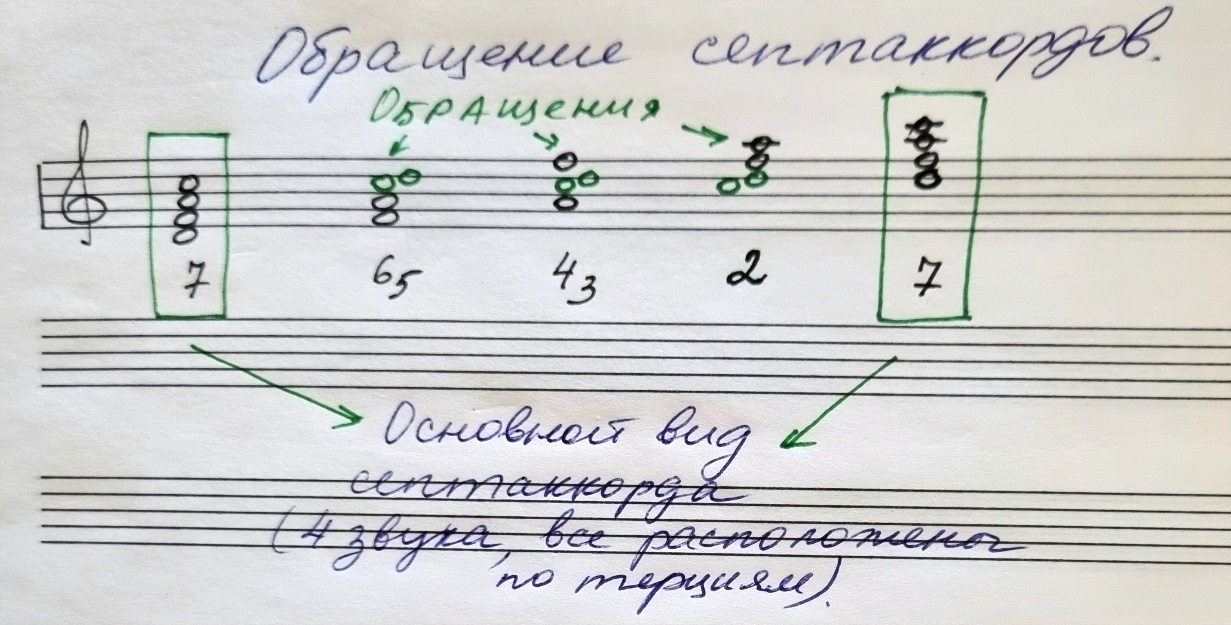 Обращение септаккордов.
Обращения
7 65 43 2 7
Основной вид
септаккорда
(4 звука, все расположены
по терциям).